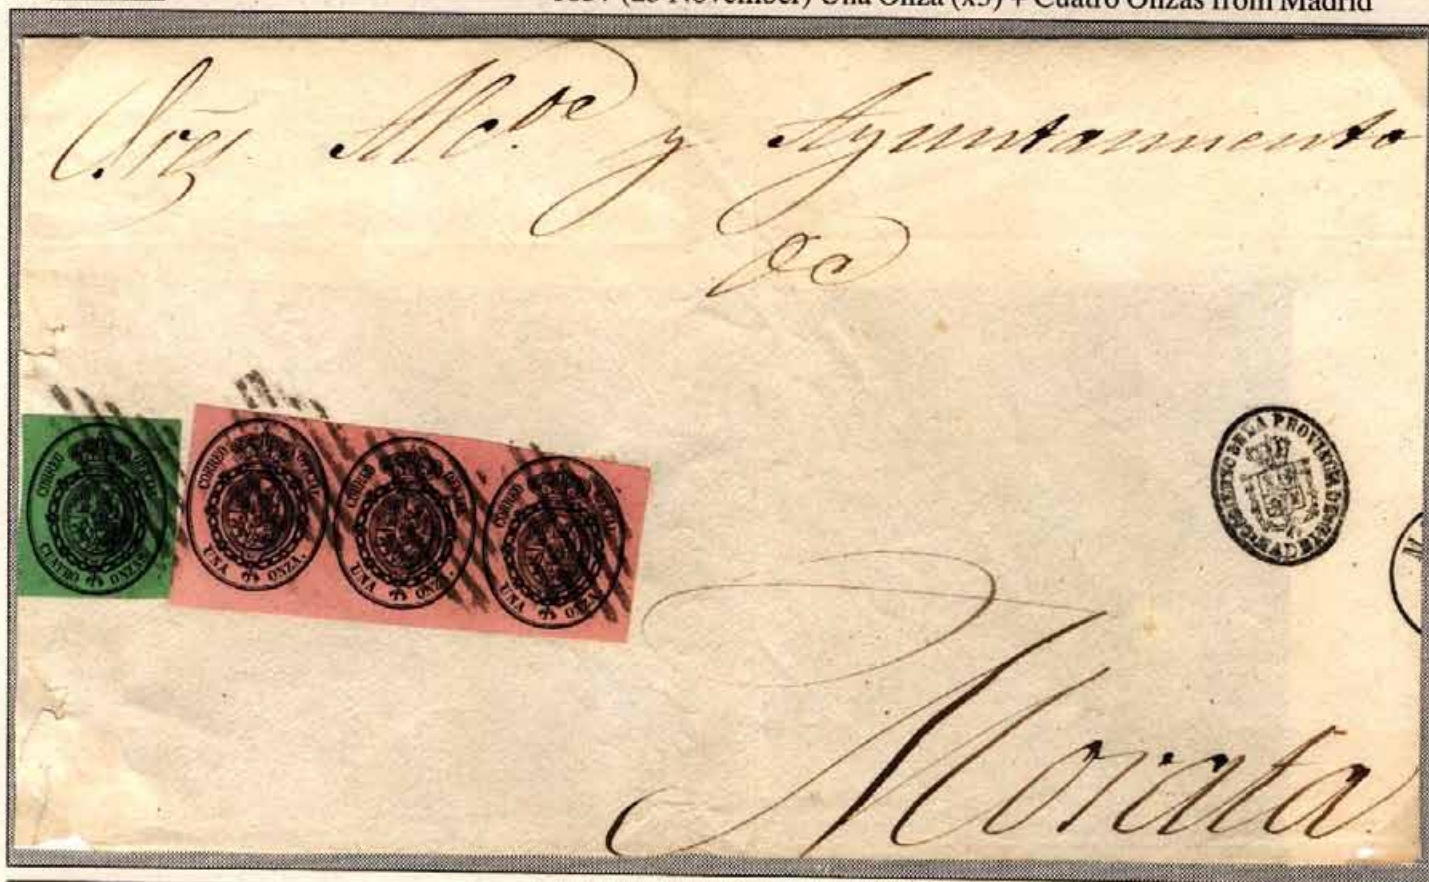 (25 November) Una Onza (x3) + Cuatro Onzas from Madrid
Sres. Alcde y Ayuntamiento
de
Morata
CORREO OFICIAL
CUATRO ONZAS
CORREO OFICIAL
UNA ONZA.
CORREO OFICIAL
UNA ONZA.
CORREO OFICIAL
UNA ONZA.
DE LA PROVINCIA DE MADRID
M